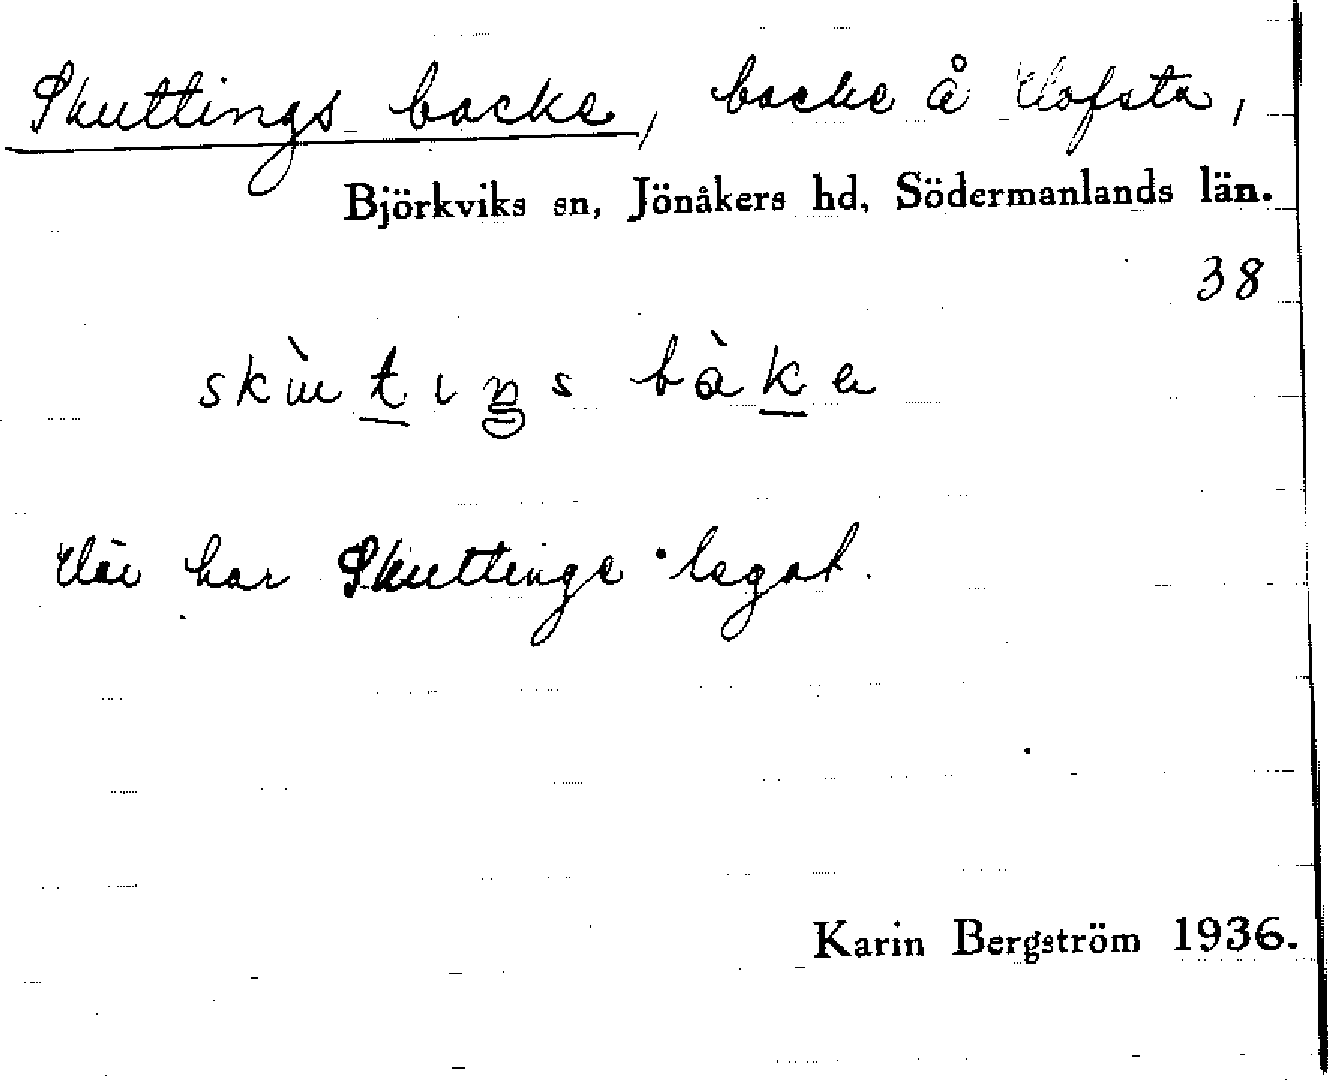 Skuttings backe, backe å Hofsta,
Björkviks sn, Jönåkers hd, Södermanlands län.
38
skùtıŋs bàka
Här har Skuttinge legat.
Karin Bergström 1936.